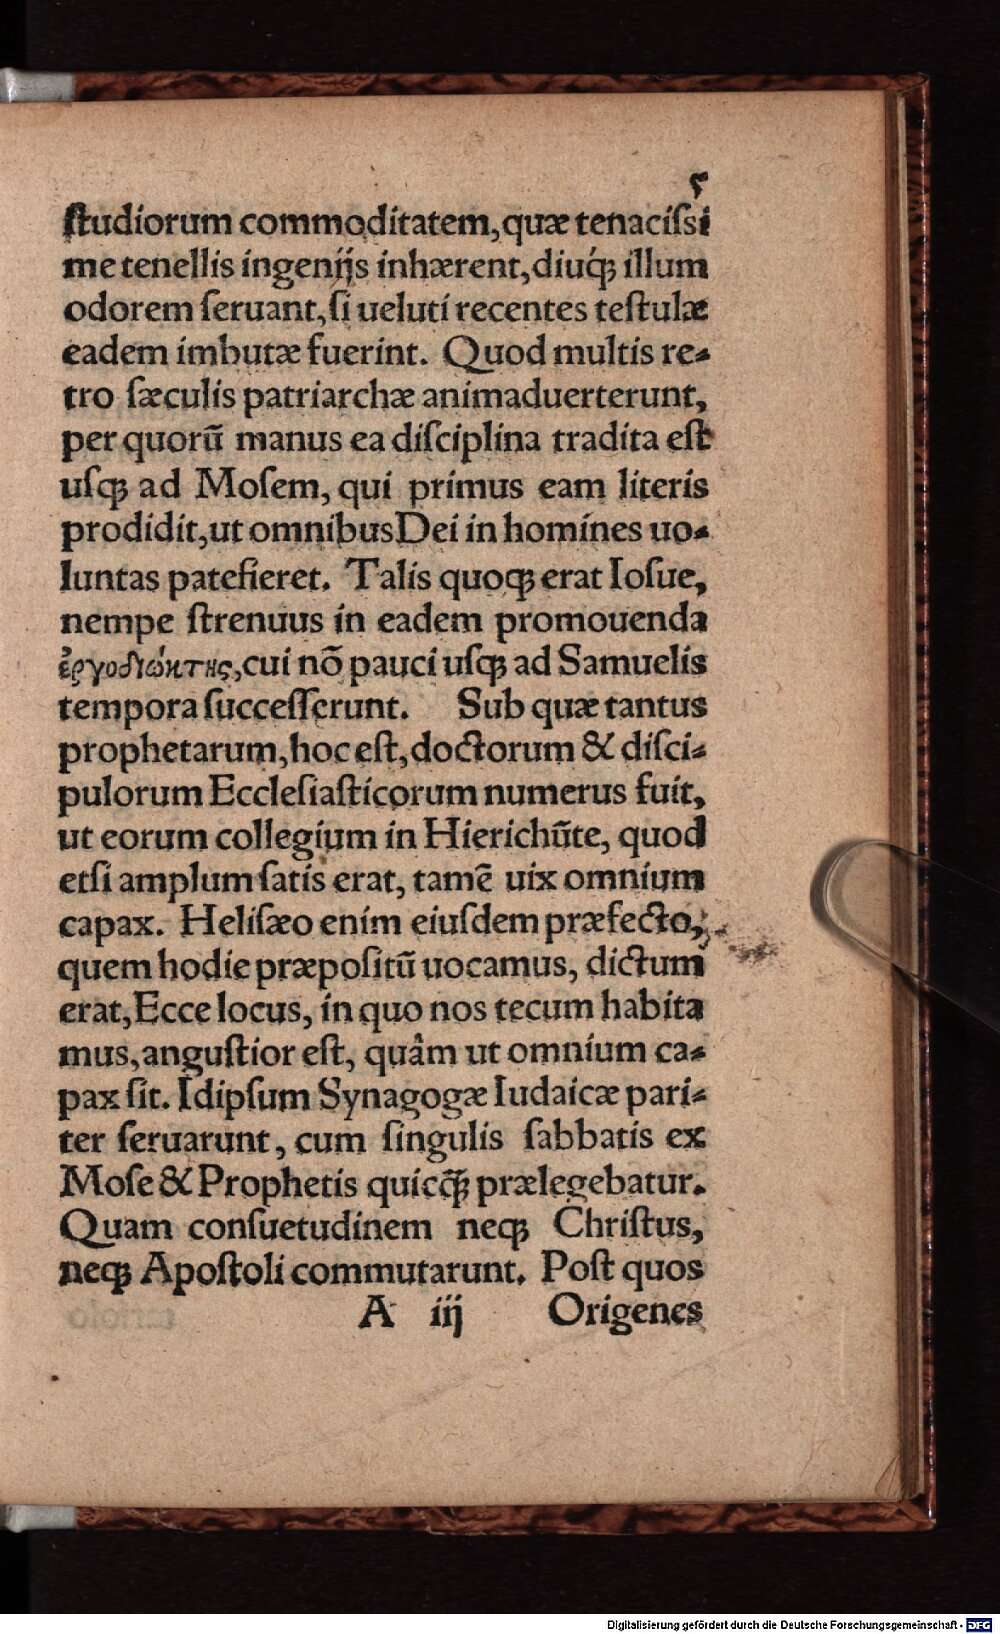 5
ſtudiorum commoditatem, quæ tenaciſsi
me tenellis ingenijs inhærent, diuq́ꝫ illum
odorem ſeruant, ſi ueluti recentes teſtulæ
eadem imbutæ fuerint. Quod multis re⸗
tro ſæculis patriarchæ animaduerterunt,
per quorū manus ea diſciplina tradita eſt
uſqꝫ ad Moſem, qui primus eam literis
prodidit, ut omnibus Dei in homines uo⸗
luntas patefieret. Talis quoqꝫ erat Ioſue,
nempe ſtrenuus in eadem promouenda
ἐργοδιώκτης, cui nō pauci uſqꝫ ad Samuelis
tempora ſucceſſerunt. Sub quæ tantus
prophetarum, hoc eſt, doctorum & diſci⸗
pulorum Eccleſiaſticorum numerus fuit,
ut eorum collegium in Hierichūte, quod
etſi amplum ſatis erat, tamē uix omnium
capax. Heliſæo enim eiuſdem præfecto,
quem hodie præpoſitū uocamus, dictum
erat, Ecce locus, in quo nos tecum habita
mus, anguſtior eſt, quâm ut omnium ca⸗
pax ſit. Idipſum Synagogæ Iudaicæ pari⸗
ter ſeruarunt, cum ſingulis ſabbatis ex
Moſe & Prophetis quicq̄ꝫ prælegebatur.
Quam conſuetudinem neqꝫ Chriſtus,
neqꝫ Apoſtoli commutarunt. Poſt quos
A iij Origenes
Digitalisierung gefördert durch die Deutsche Forschungsgemeinschaft - DFG